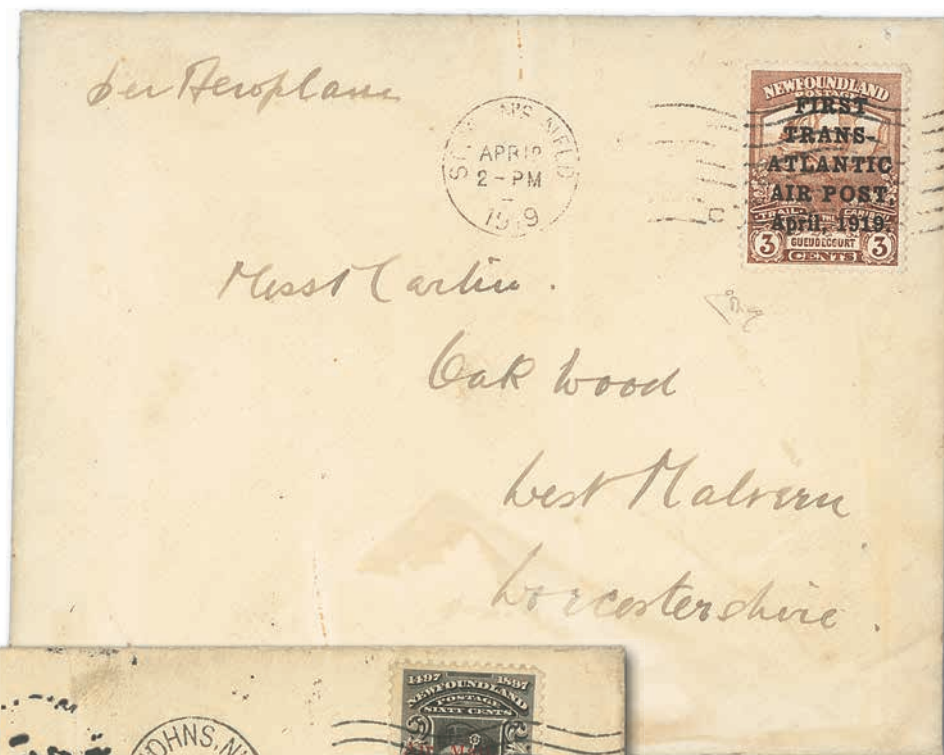 per Aeroplane
ST. JOHN'S NFLD
APR 12
2 - PM
1919
NEWFOUNDLAND
POSTAGE
FIRST
TRANS-
ATLANTIC
AIR POST,
April, 1919.
TRAIL OF THE CARIBOU
3 GUEUDECOURT 3
CENTS
Oak Wood
West Malvern
Worcestershire.
1497 1897
NEWFOUNDLAND
POSTAGE
SIXTY CENTS
JOHNS, N